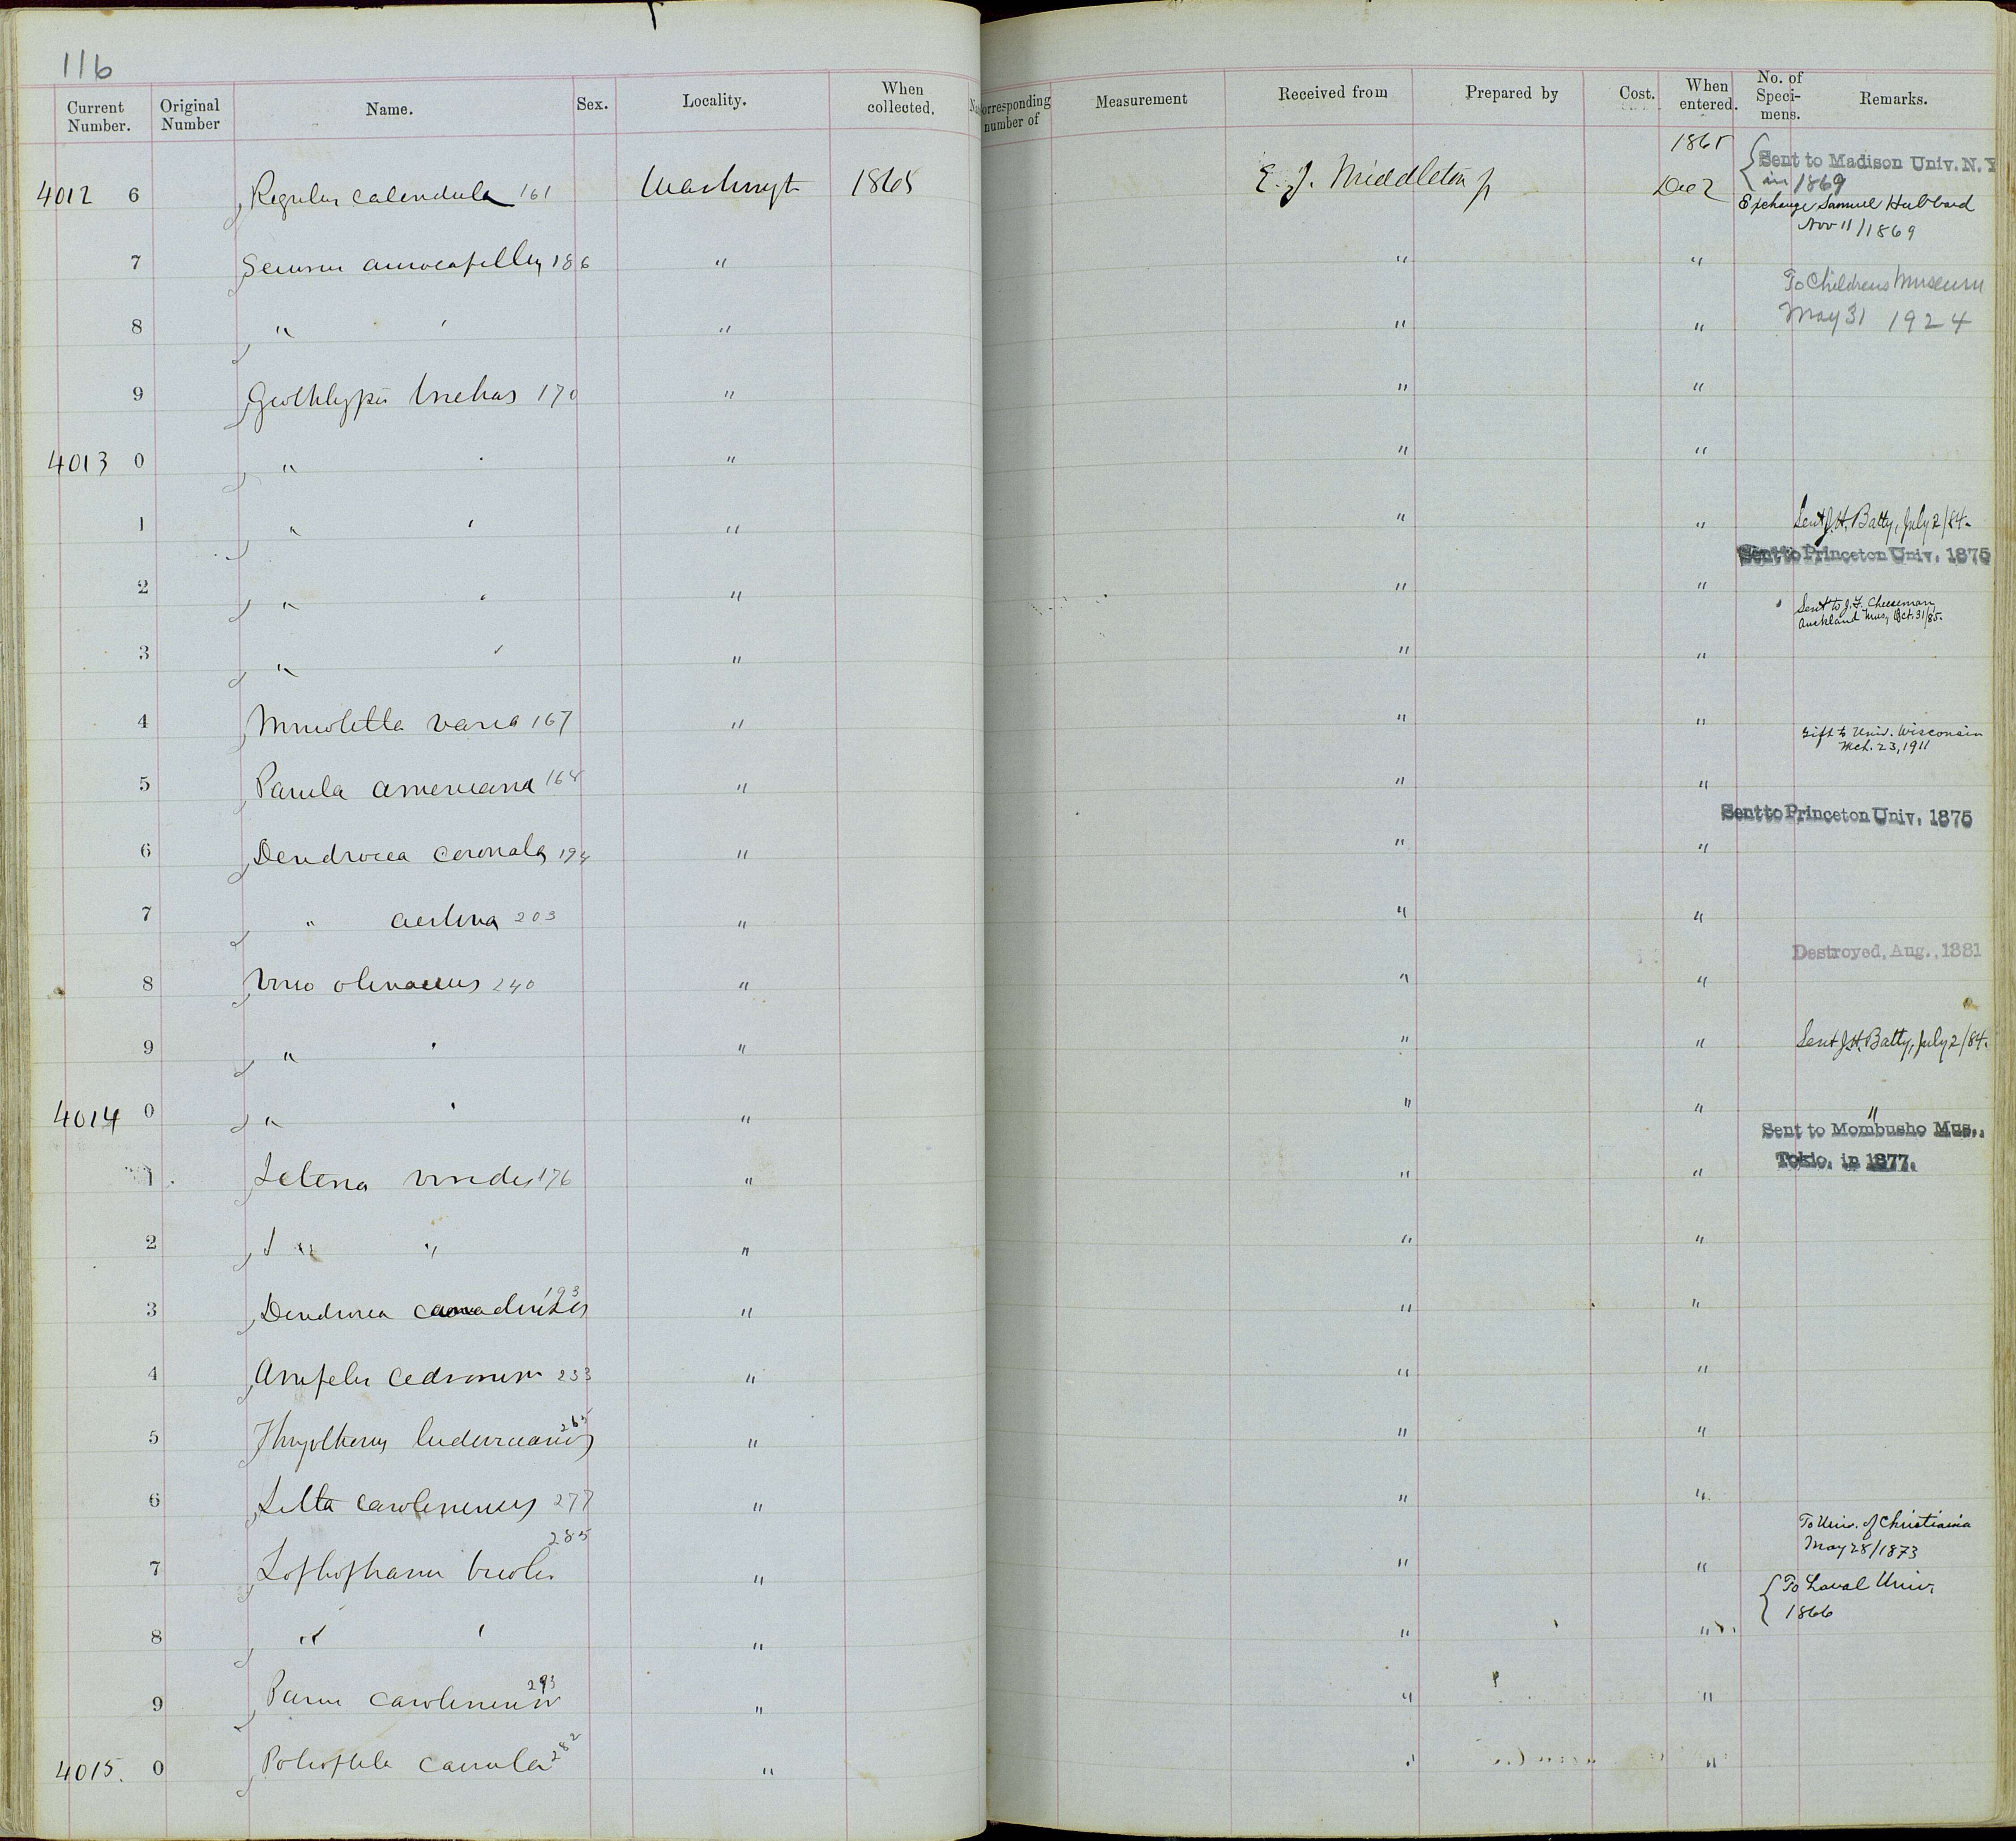 116
Current Number. Original Number Name. Sex. Locality. When collected. Corresponding number of Measurement Received from Prepared by Cost. When entered. No. of Specimens. Remarks.
4012 6 Regulus calendula 161 Washingt 1865 E. J. Middleton Jr 1865 Dec 2 Sent to Madison Univ. N. Y
in 1869
Exchange Samuel Hubbard
Nov 11/1869
7 Seiurus aurocapillus 186 " " "
To Childrens Museum
May 31 1924
8 " ' " " "
9 Geothlypis trichas 170 " " "
4013 0 " ' " " "
1 " ' " " " Sent J. H. Batty, July 2/84.
Sent to Princeton Univ. 1875
2 " ' " " "
Sent to J. F. Cheeseman,
Auckland Mus, Oct. 31/85.
3 " ' " " "
4 Mniotilta varia 167 " " "
Gift to Univ. Wisconsin
Mch. 23, 1911
5 Parula americana 168 " " "
Sent to Princeton Univ. 1875
6 Dendroica coronata 194 " " "
7 " aestiva 203 " " "
Destroyed, Aug., 1881
8 Vireo olivaceus 240 " " "
9 " ' " " " Sent J. H. Batty, July 2/84.
4014 0 " ' " " " "
Sent to Mombusho Mus.,
Tokio, in 1877.
1 " " "
viridis 176
2 " " " " "
3 Dendroica canadensis 193 " " "
4 Ampelis cedrorum 233 " " "
5 Thryothorus ludovicianus 265 " " "
6 Sitta carolinensis 277 " " "
To Univ. of Christiania
May 28/1873
7 Lophophanes bicolor 285 " " "
To Laval Univ.
1866
8 " ' " " "
9 Parus carolinensis 293 " " "
4015. 0 Polioptila caerulea 282 " " "